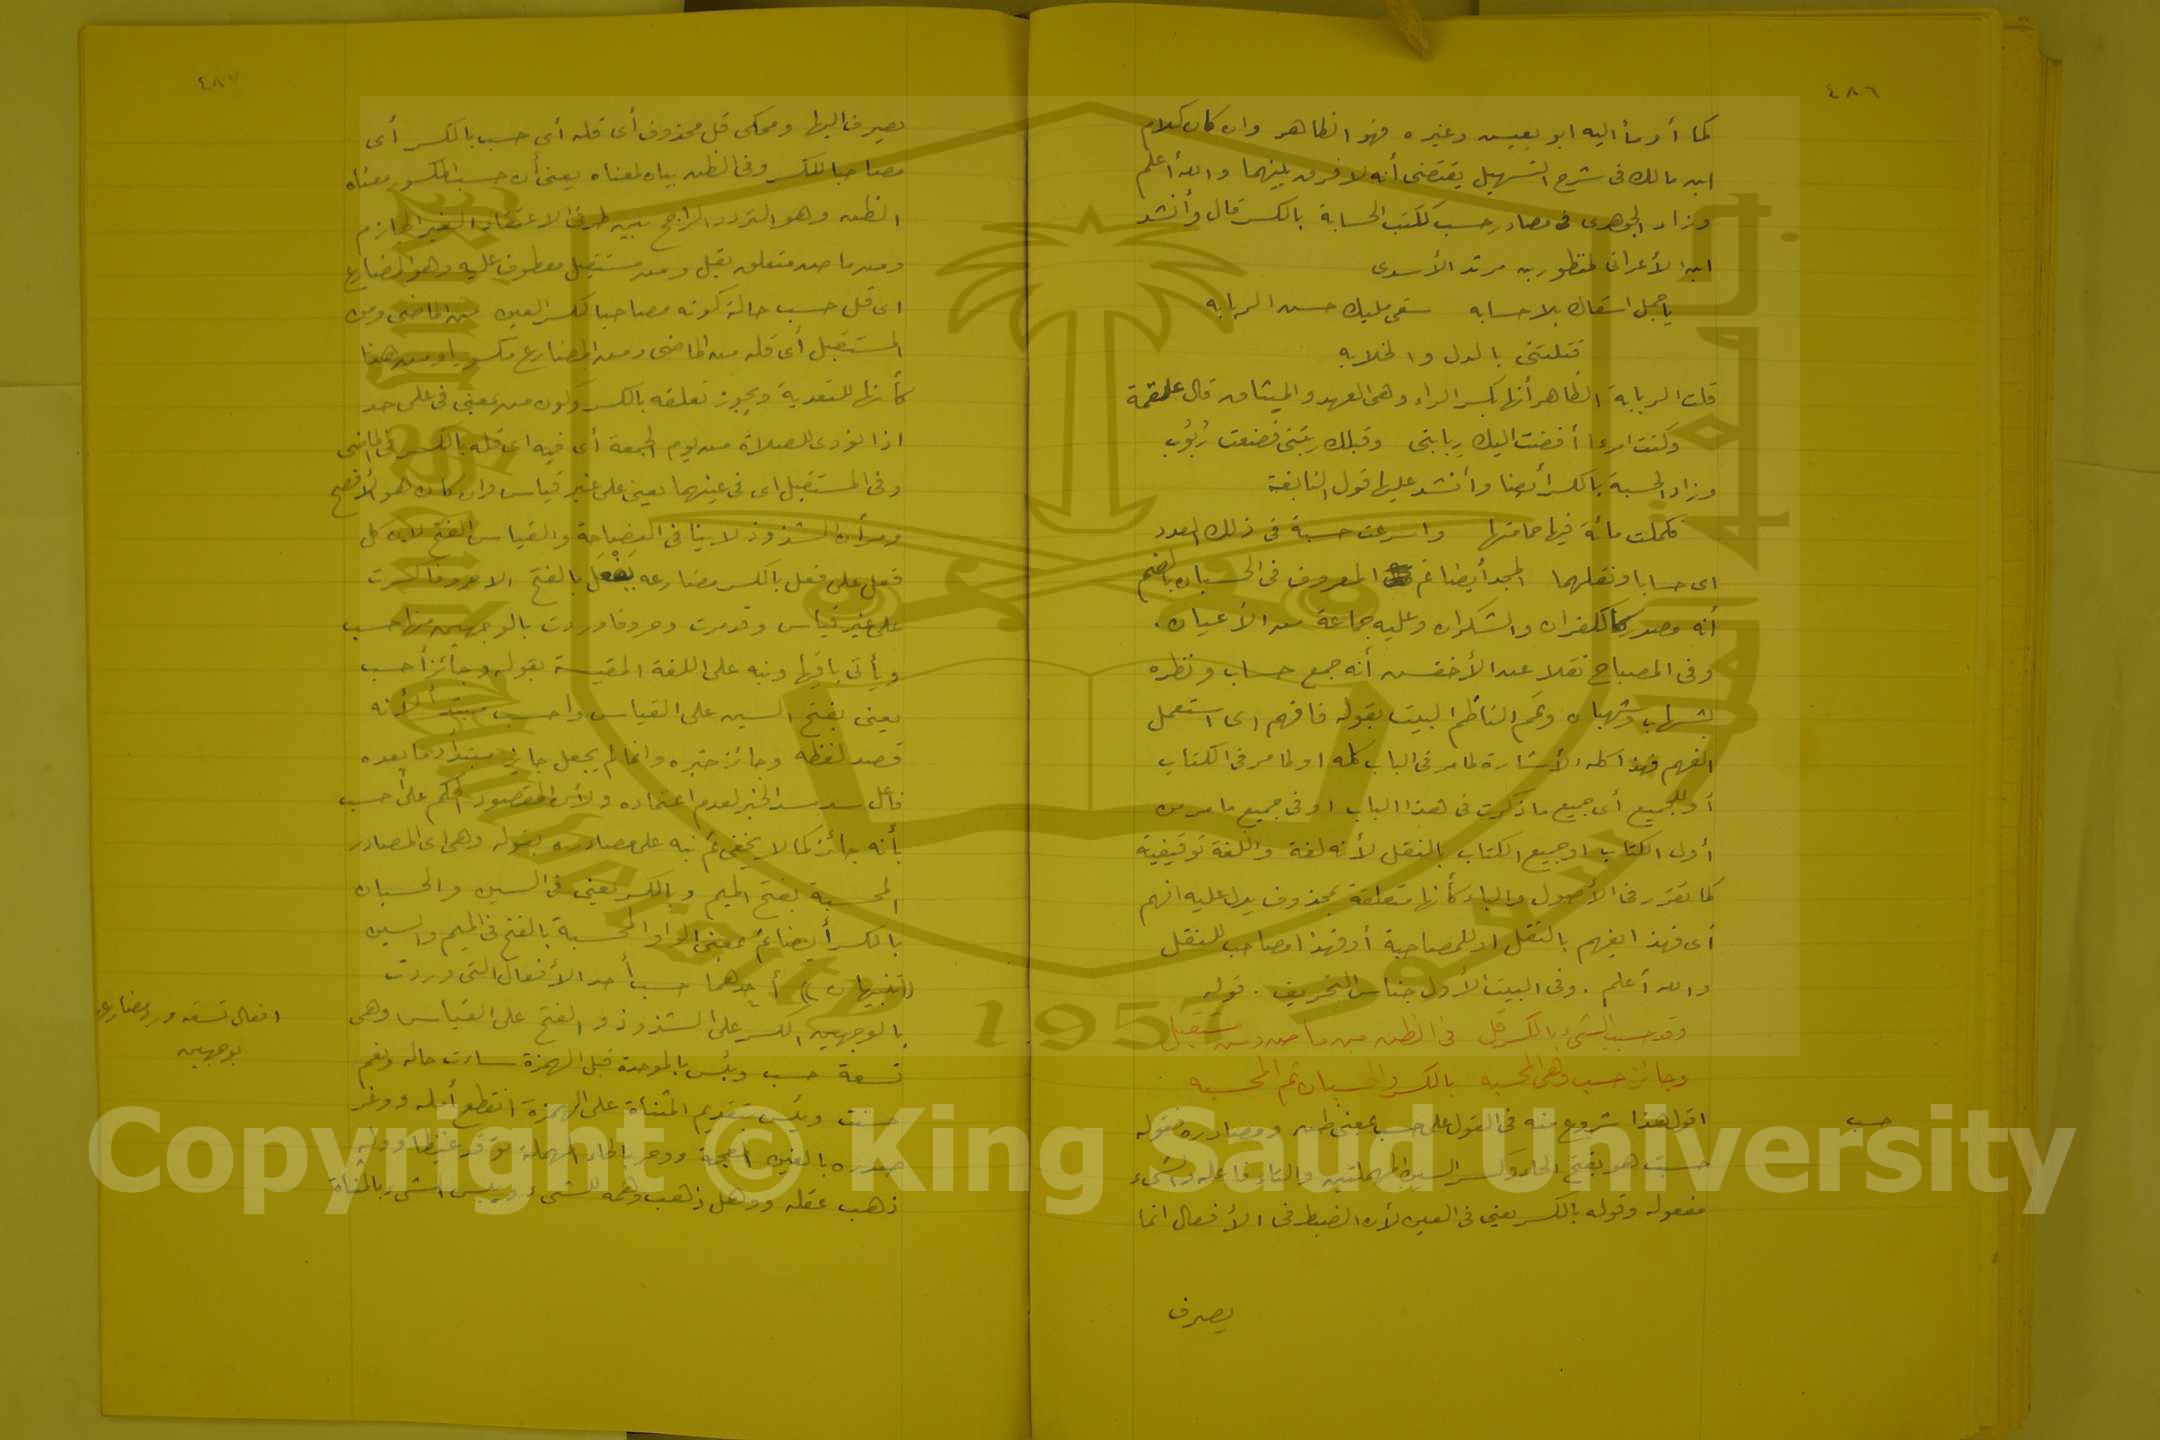 ٤٨٦
كما أومأ اليه ابو يعيش وغيره فهو الظاهر وان كان كلام
ابن مالك فى شرح التسهيل يقتضى أنه لا فرق بينهما والله أعلم
وزاد الجوهرى فى مصادر حسب ككتب الحسابة بالكسر قال وأنشد
ابن الأعرابى لمنظور بن مرثد الأسدى
يا جمل اسقاك بلا حسابه سقى مليك حسن الربابه
قتلتنى بالدل والخلابه
قلت الربابة الظاهر أنها بكسر الراء وهى العهد والميثاق قال علقمة
وكنت امرءا أفضت اليك ربابتى وقبلك ربتنى فضعت ربوب
وزاد الحسبة بالكسر أيضا وأنشد عليها قول النابغة
فكملت مائة فيها حمامتها واسرعت حسبة فى ذلك العدد
اى حسابا ونقلهما المجد أيضا ثم المعروف فى الحسبان بالضم
أنه مصدر كالكفران والشكران وعليه جماعة من الأعيان.
وفى المصباح نقلا عن الأخفش أنه جمع حساب ونظره
بشهاب وشهبان وتمم الناظم البيت بقوله فافهم اى استعمل
الفهم فهذا كله الأشارة لما مر فى الباب كله او لما مر فى الكتاب
أو للجميع أى جميع ما ذكرت فى هذا الباب او فى جميع ما مر من
أول الكتاب او جميع الكتاب بالنقل لأنه لغة واللغة توقيفية
كما تقرر فى الأصول والباء كأنها متعلقة بمحذوف يدل عليه افهم
أى فهذا يفهم بالنقل او للمصاحبة أو فهذا مصاحب للنقل
والله أعلم. وفى البيت الأول جناس التحريف. قوله
وقد حسبت الشىء بالكسر قل فى الظن من ماض ومن مستقبل
وجائز حسب وهى المحسبه بالكسر والحسبان ثم المحسبه
حسب
اقول هذا شروع منه فى القول على حسب بمعنى ظن ومصادره فقوله
حسبت هو بفتح الحاء وكسر السين المهملتين والتاء فاعله والشىء
مفعوله وقوله بالكسر يعنى فى العين لأن الضبط فى الأفعال انما
يصرف
٤٨٧
يصرف اليها ومحكى قل محذوف أى قله أى حسب بالكسر أى
مصاحبا للكسر وفى الظن بيان لمعناه يعنى أن حسب المكسور معناه
الظن وهو التردد الراجح بين طرفى الاعتقاد الغير الجازم
ومن ماض متعلق بقل ومن مستقبل معطوف عليه وهو المضارع
اى قل حسب حالة كونه مصاحبا لكسر العين من الماضى ومن
المستقبل أى قله من الماضى ومن المضارع مكسورا ومن هنا
كأنها للتعدية ويجوز تعلقه بالكسر وكون من بمعنى فى على حد
اذا نودى للصلاة من يوم الجمعة أى فيه اى قله بالكسر فى الماضى
وفى المستقبل اى فى عينهما يعنى على غير قياس وان كان هو الأفصح
ومر أن الشذوذ لا ينافى الفصاحة والقياس الفتح لأن كل
فعل على فعل بالكسر مضارعه يفعل بالفتح الا حروفا كسرت
على غير قياس وقد مرت وحروفا وردت بالوجهين منها حسب
ويأتى باقيها ونبه على اللغة المقيسة بقوله وجائز أحسب
يعنى بفتح السين على القياس واحسب مبتدأ لأنه
قصد لفظه وجائز خبره وانما لم يجعل جائز مبتدأ وما بعده
فاعل سد مسد الخبر لعدم اعتماده ولأن المقصود الحكم على أحسب
بأنه جائز كما لا يخفى ثم نبه على مصادره بقوله وهى اى المصادر
المحسبة بفتح الميم وبالكسر يعنى فى السين والحسبان
بالكسر أيضا ثم بمعنى الواو المحسبة بالفتح فى الميم والسين
(تنبيهان) أحدهما حسب أحد الأفعال التى وردت
افعال تسعة ورد مضارعها
بوجهين
بالوجهين الكسر على الشذوذ والفتح على القياس وهى
تسعة حسب وبئس بالموحدة قبل الهمزة ساءت حاله ونعم
حسنت ويئس بتقديم المثناة على الهمزة انقطع أمله ووغر
صدره بالغين المعجمة ووحر بالحاء المهملة توقد غيظا ووله
ذهب عقله ووهل ذهب وهمه للشىء ويبس الشىء بالمثناة
Copyright © King Saud University
1957